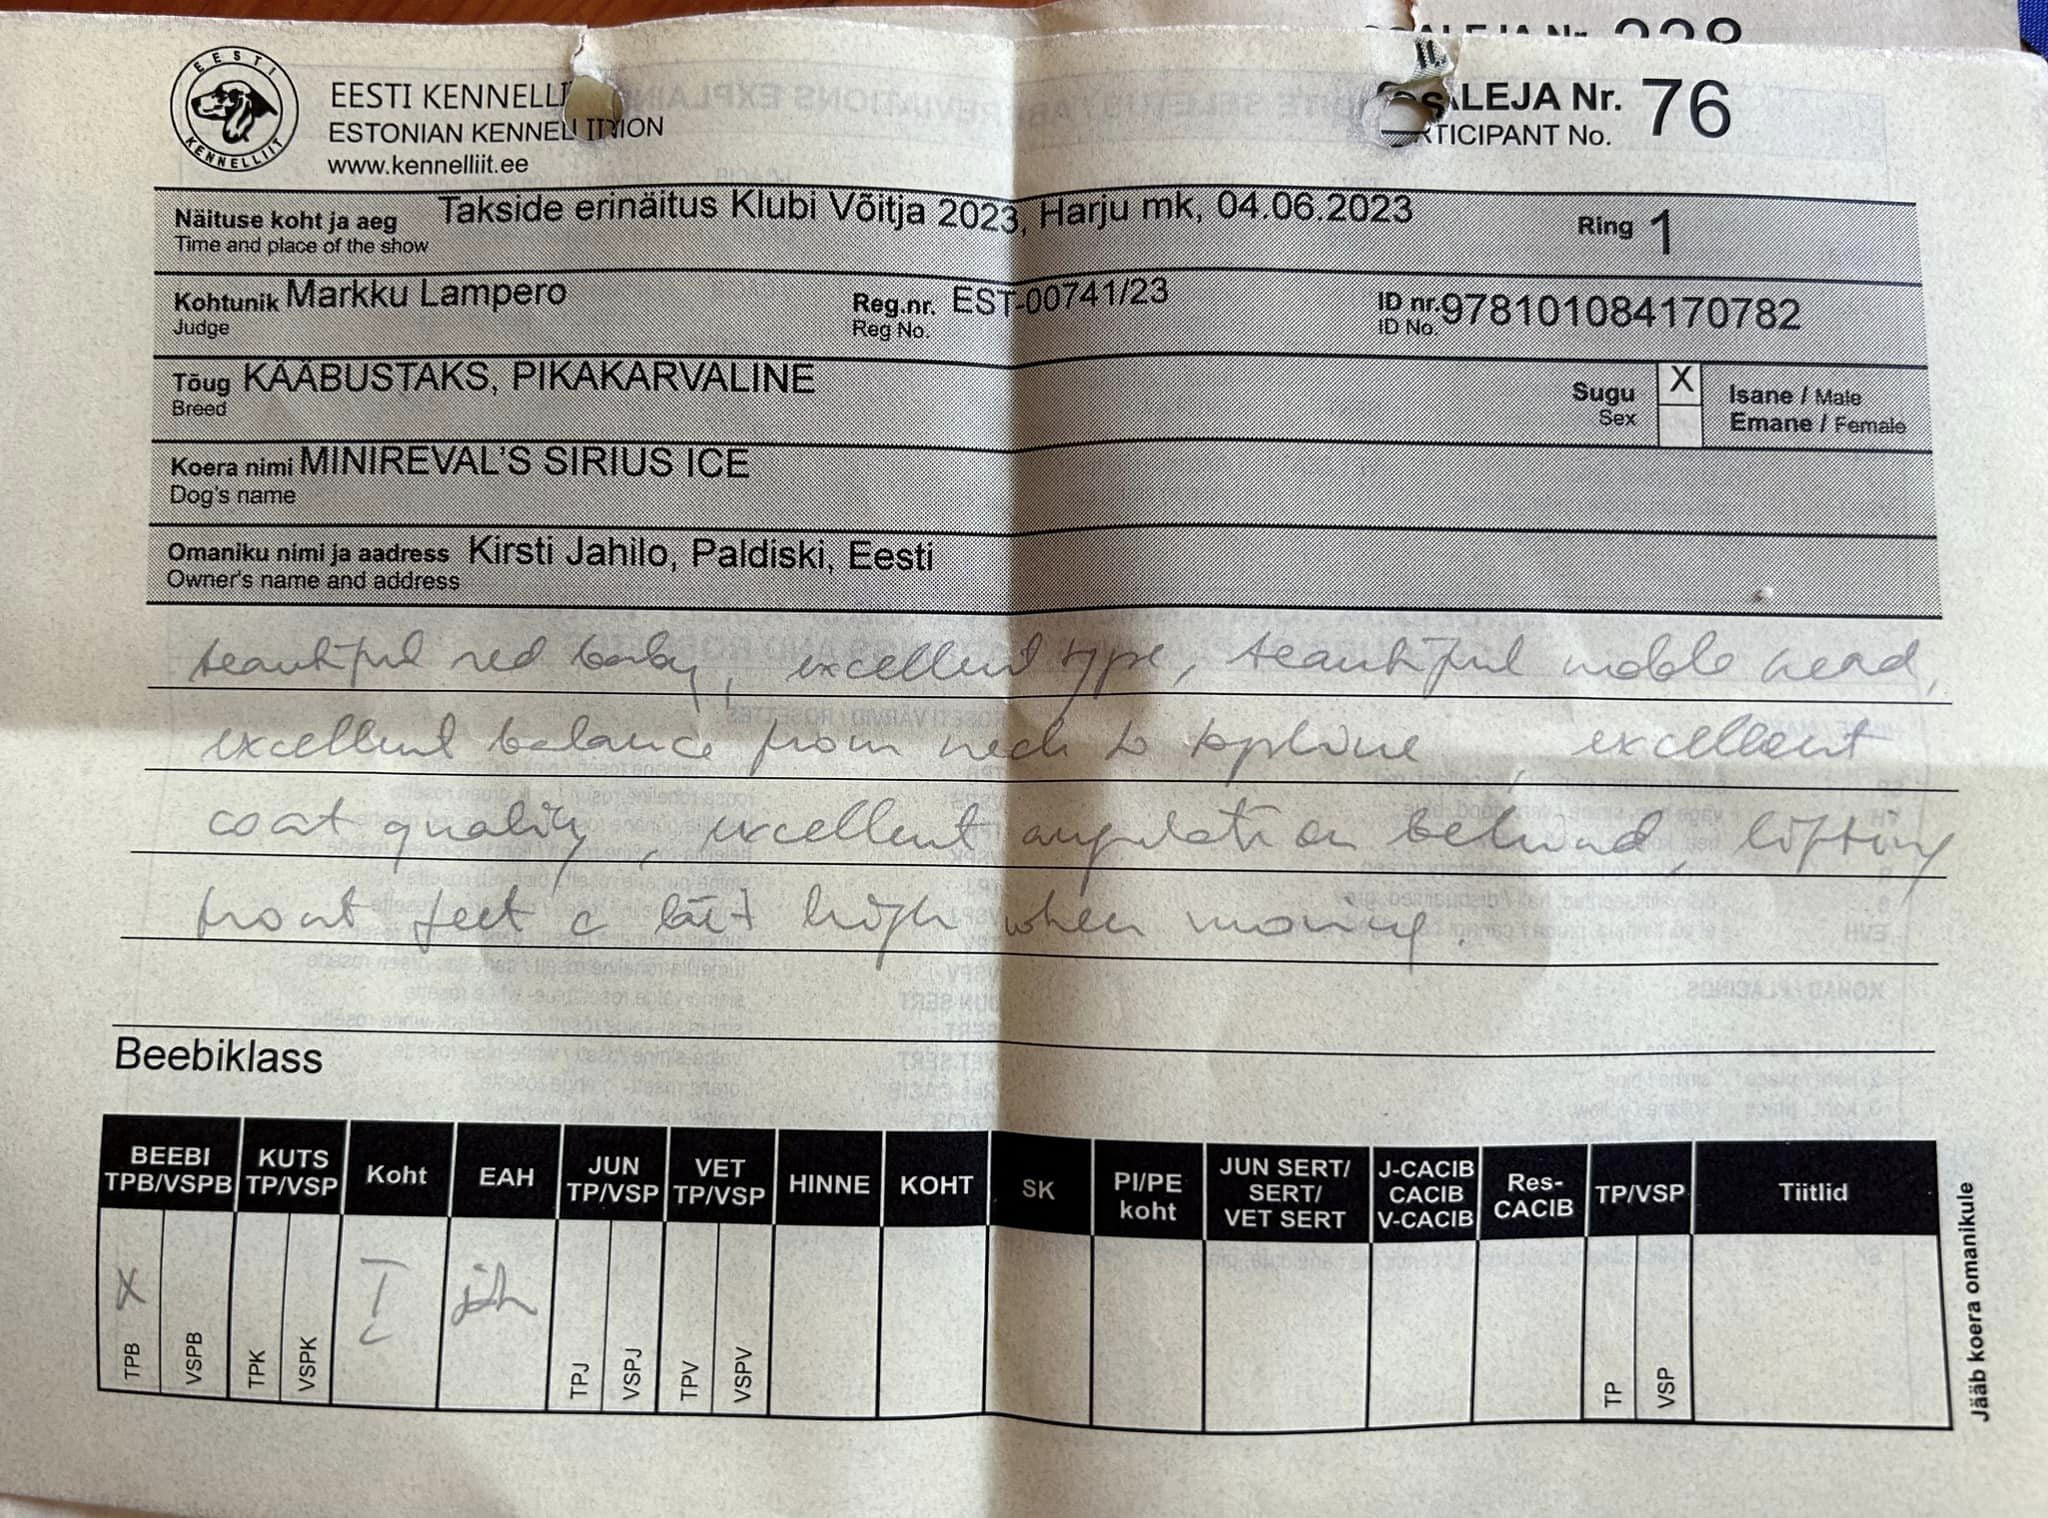 EESTI KENNELLIIT
ESTONIAN KENNEL UNION
www.kennelliit.ee
OSALEJA Nr. 76
PARTICIPANT No.
Näituse koht ja aeg Takside erinäitus Klubi Võitja 2023, Harju mk, 04.06.2023 Ring 1
Time and place of the show
Kohtunik Markku Lampero Reg.nr. EST-00741/23 ID nr. 978101084170782
Judge Reg No. ID No.
Tõug KÄÄBUSTAKS, PIKAKARVALINE Sugu X Isane / Male
Breed Sex Emane / Female
Koera nimi MINIREVAL'S SIRIUS ICE
Dog's name
Omaniku nimi ja aadress Kirsti Jahilo, Paldiski, Eesti
Owner's name and address
beautiful red baby, excellent type, beautiful noble head,
excellent balance from neck to topline excellent
coat quality, excellent angulation behind, lifting
front feet a bit high when moving.
Beebiklass
BEEBI TPB/VSPB KUTS TP/VSP Koht EAH JUN TP/VSP VET TP/VSP HINNE KOHT SK PI/PE koht JUN SERT/ SERT/ VET SERT J-CACIB CACIB V-CACIB Res-CACIB TP/VSP Tiitlid
X I jah
TPB VSPB TPK VSPK TPJ VSPJ TPV VSPV TP VSP
Jääb koera omanikule